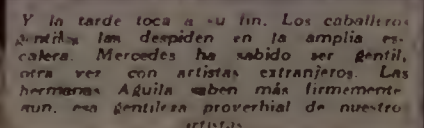 Y la tarde toca a su fin. Los caballeros
gentiles las despiden en la amplia es-
calera. Mercedes ha sabido ser gentil,
otra vez con artistas extranjeros. Las
hermanas Aguila saben más firmemente
aun, esa gentileza proverbial de nuestro
artistas